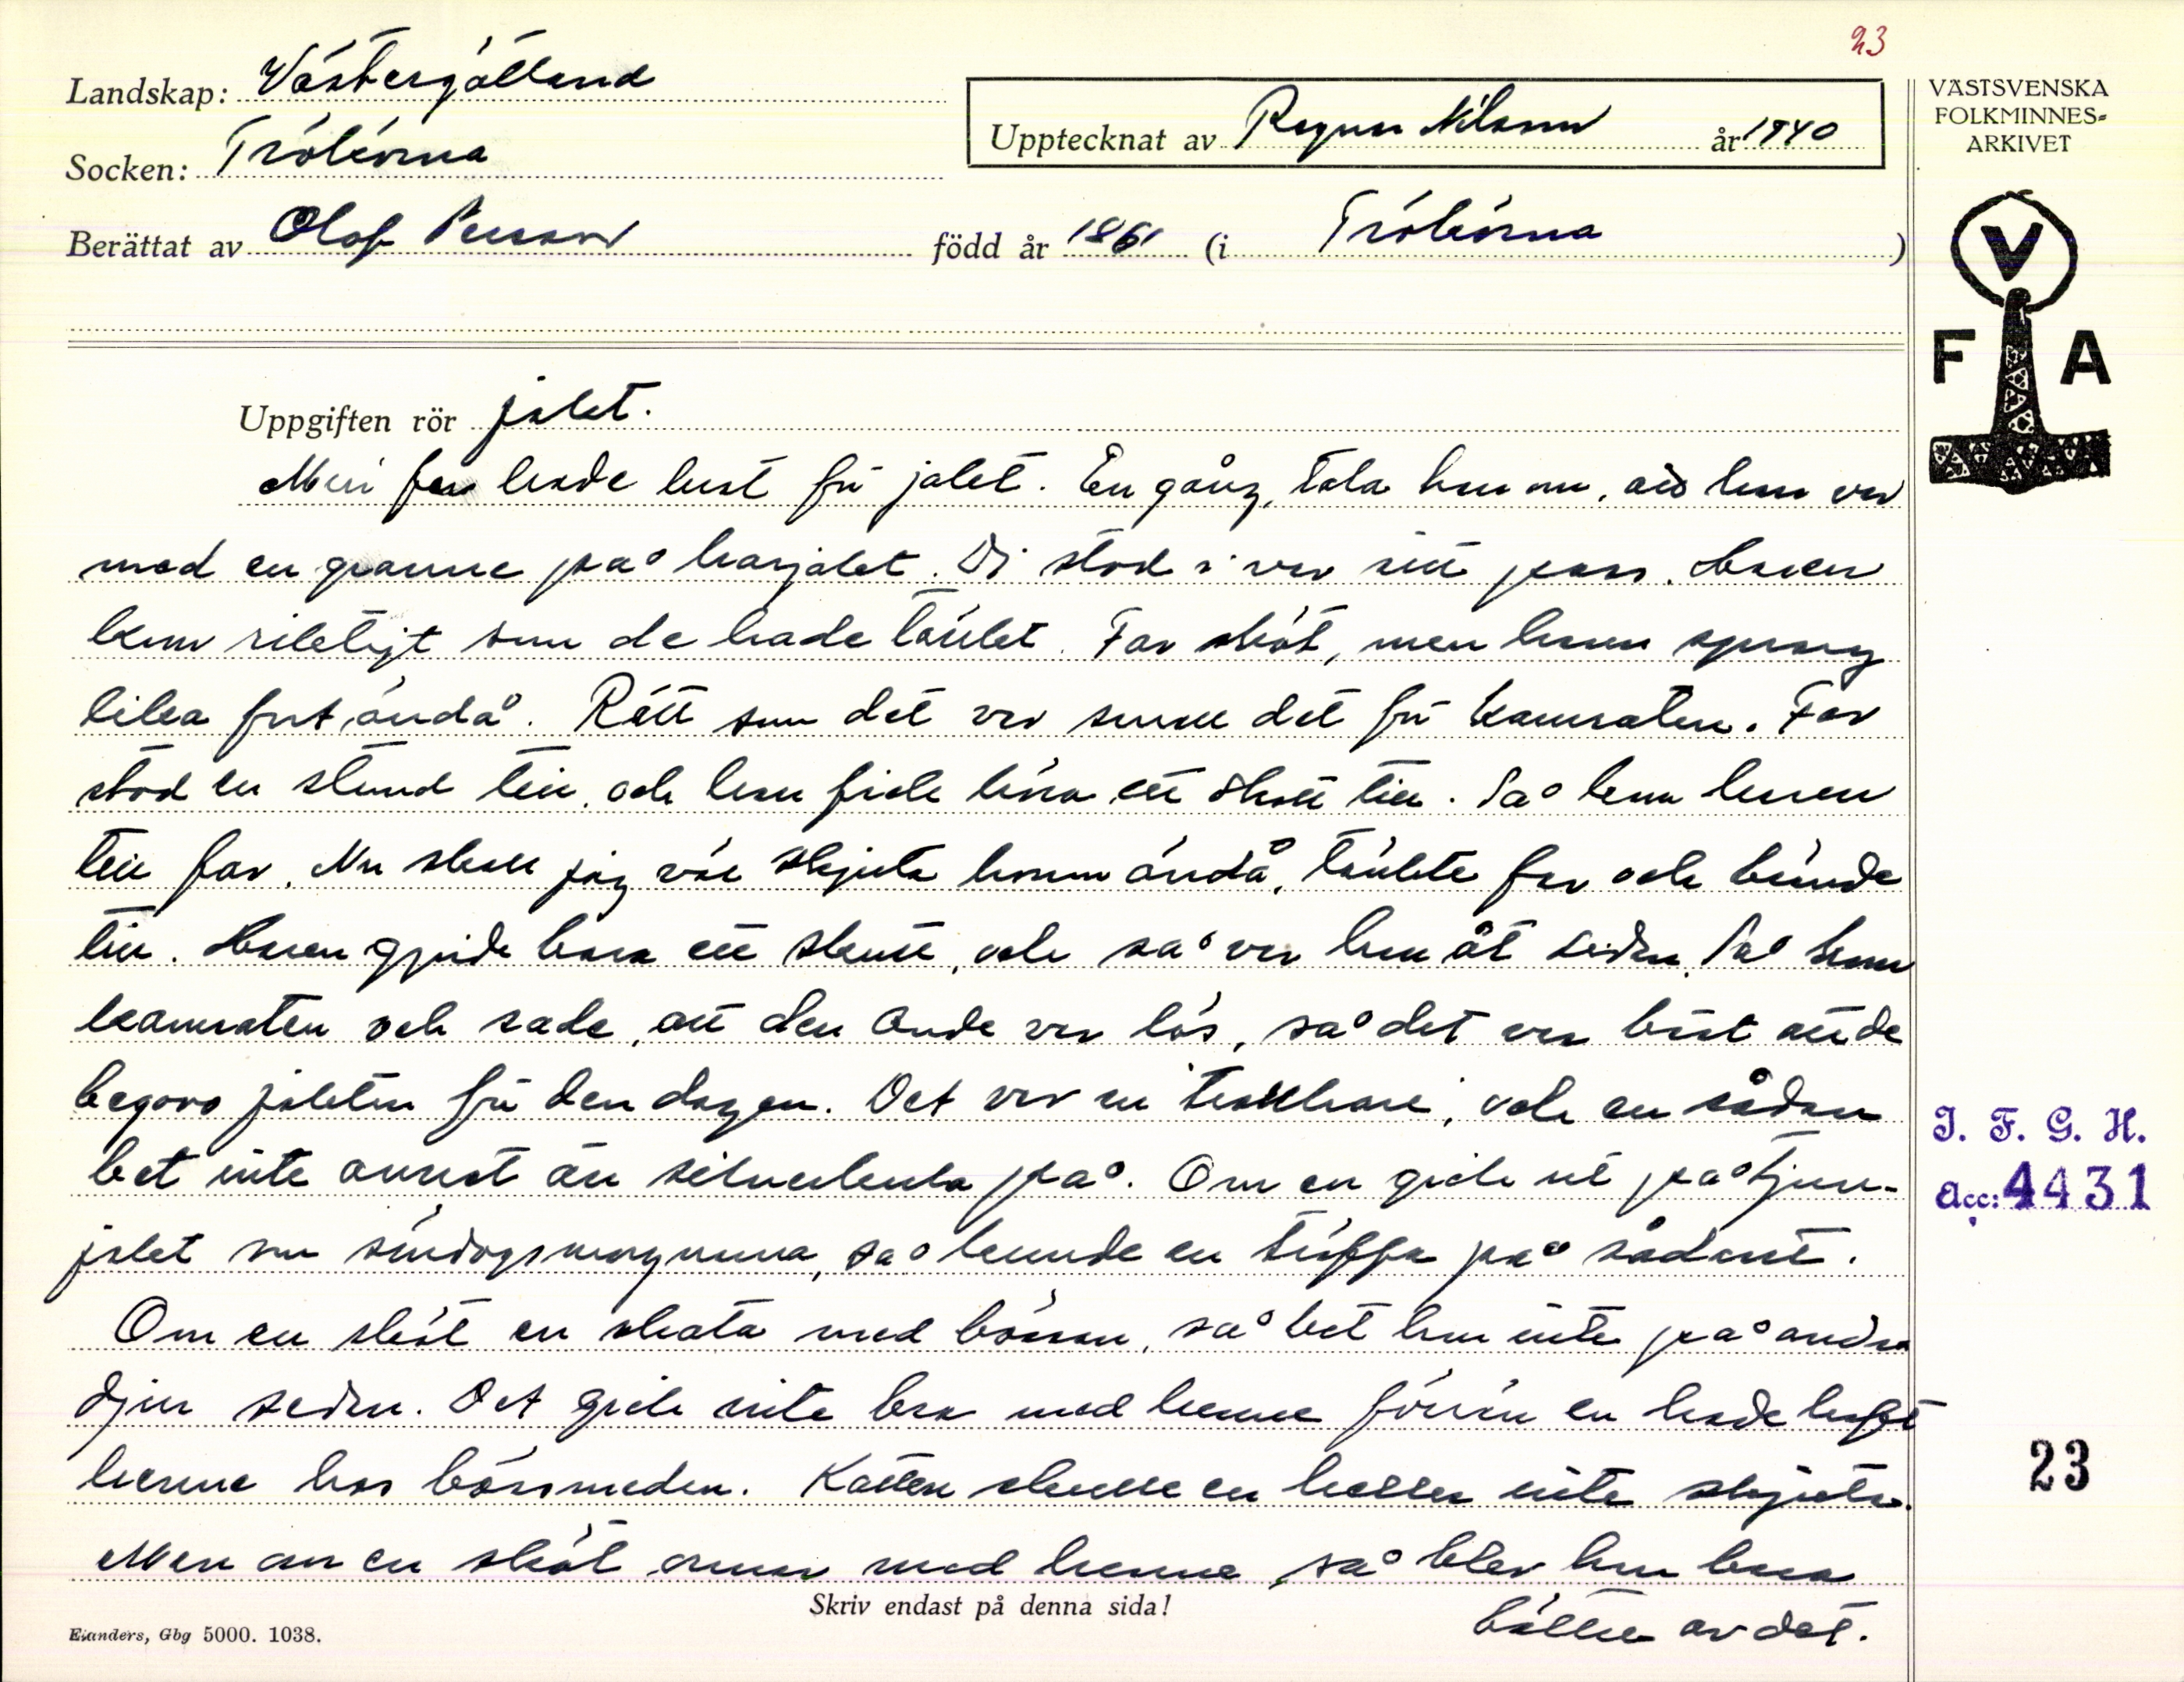 23
Landskap: Västergötland
Socken: Trökörna
Upptecknat av Ragnar Nilsson år 1940
Berättat av Olof Persson född år 1861 (i Trökörna)
VÄSTSVENSKA
FOLKMINNES=
ARKIVET
V
F A
Uppgiften rör jakt.
Min far hade lust för jakt. En gång, tala han om, att han var
med en granne på harjakt. Di stod i var sitt pass. Haren
kom riktigt som de hade tänkt. Far sköt, men haren sprang
lika fort ändå. Rätt som det var small det för kamraten. Far
stod en stund till, och han fick höra ett skott till. Så kom haren
till far. Nu skall jag väl skjuta honom ändå, tänkte far och brände
till. Haren gjorde bara ett skutt, och så var han åt sidan. Så kom
kamraten och sade, att den Onde var lös, så det var bäst att de
begava jakten för den dagen. Det var en trollhare, och en sådan
bet inte annat än silverkula på. Om en gick ut på tjur-
jakt om söndagsmorgnarna, så kunde en träffa på sådant.
Om en sköt en skata med bössan, så bet hon inte på andra
djur sedan. Det gick inte bra med henne förrän en hade haft
henne hos bössmeden. Katten skulle en heller inte skjuta.
Men om en sköt ormar med henne så blev hon bara
bättre av det.
I. F. G. H.
Acc: 4431
23
Skriv endast på denna sida!
Elanders, Gbg 5000. 1038.